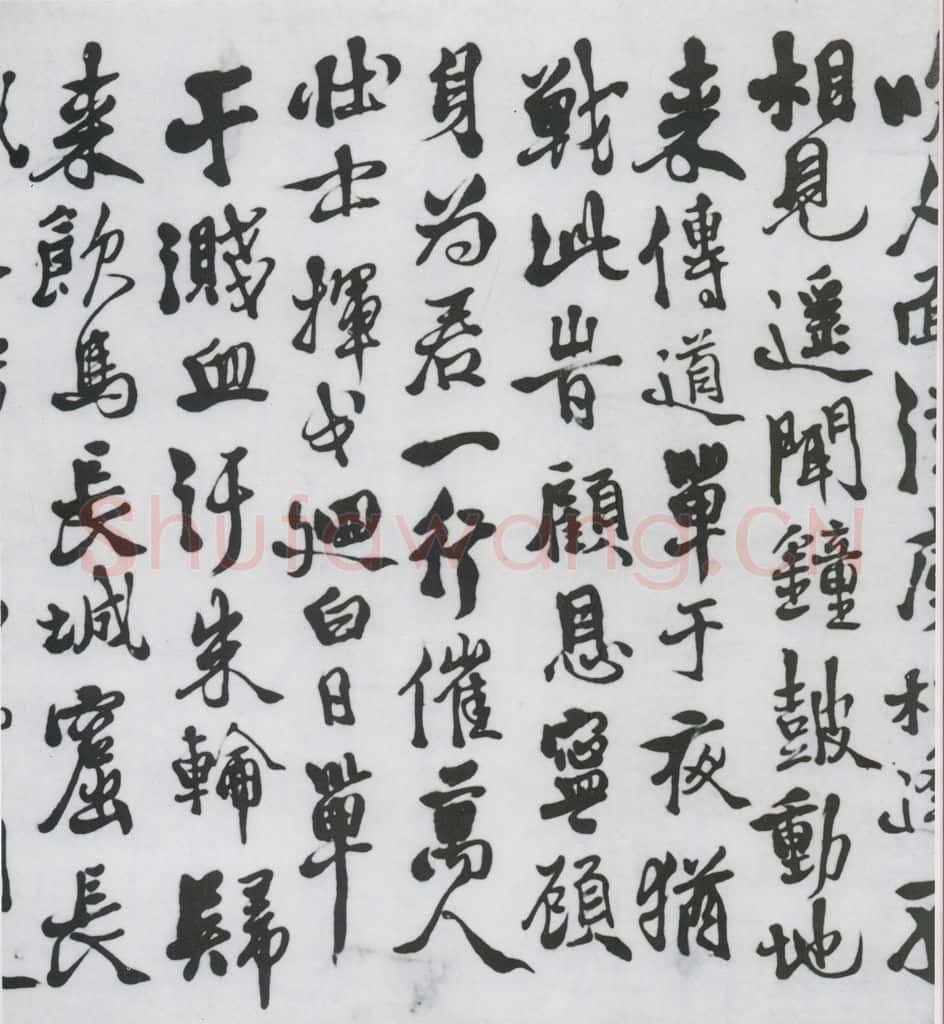 吹人面漢虜相逢不
相見遥聞鐘鼓動地
来傳道單于夜猶
戰此旹顧恩寧顧
身為君一行催萬人
壯士揮戈廻白日單
于濺血汙朱輪歸
来飲馬長城窟長
Shufawang.CN